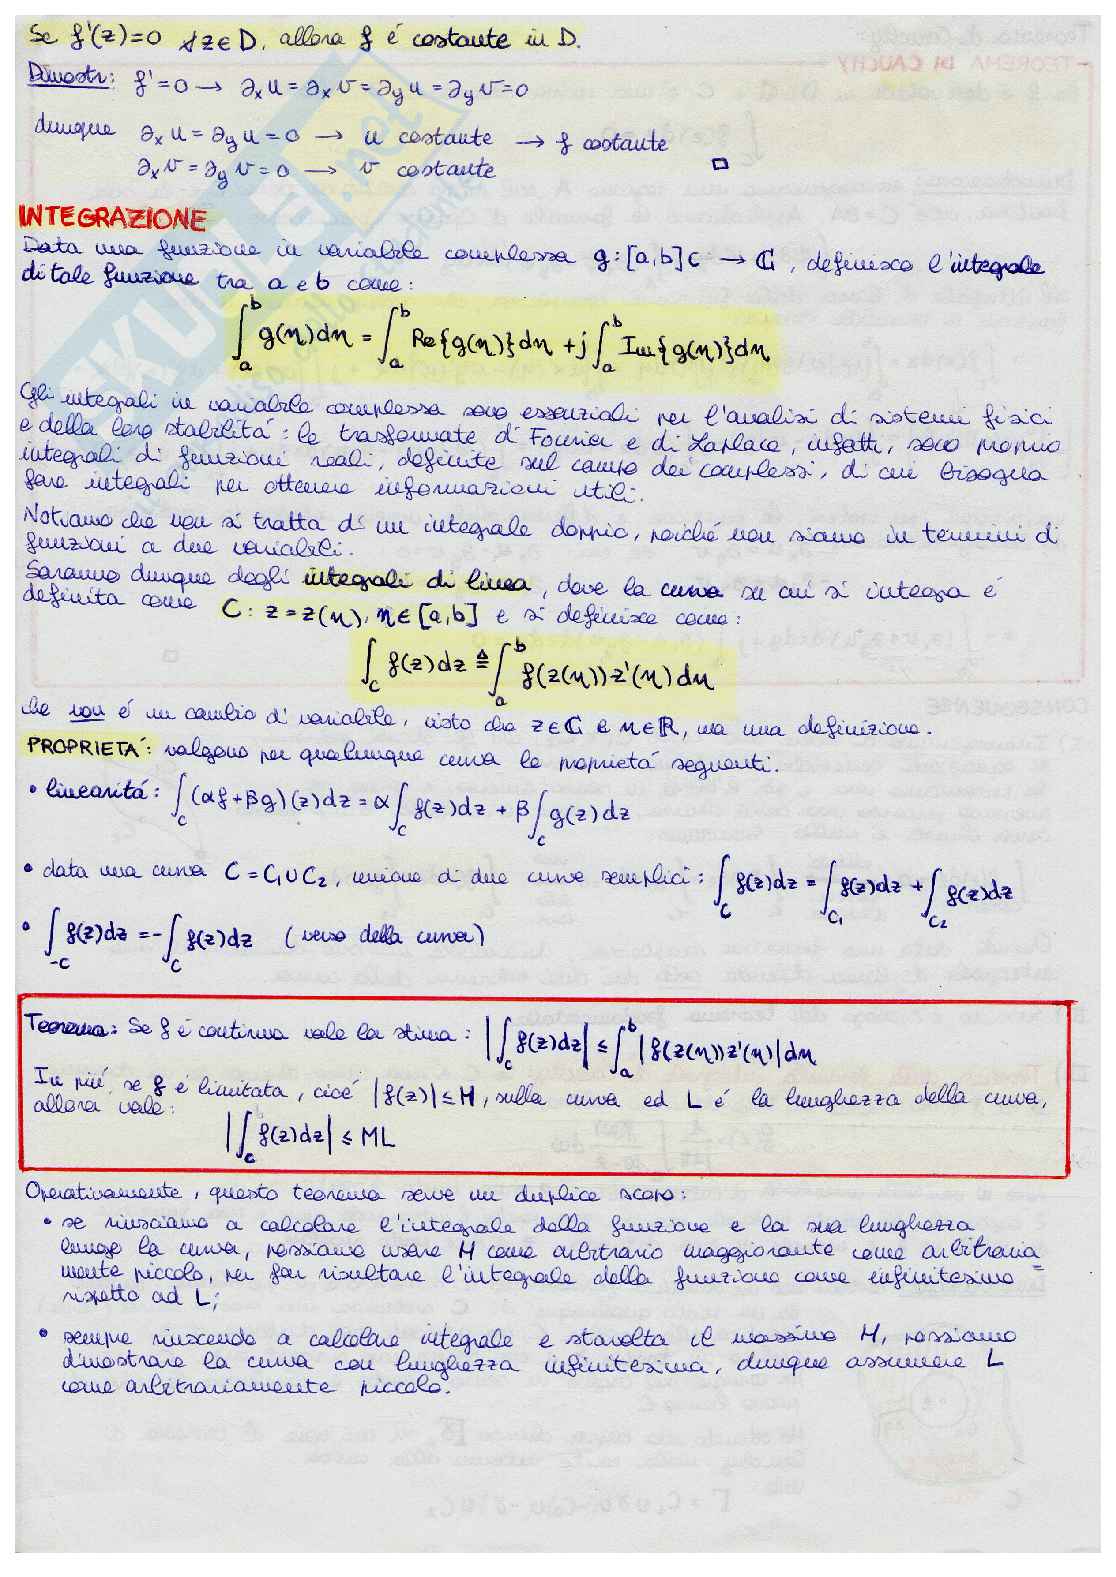 Se f'(z)=0 ∀z∈D, allora f é costante in D.
Dimostr: f'=0 → ∂ₓu = ∂ₓv = ∂ᵧu = ∂ᵧv = 0
dunque ∂ₓu = ∂ᵧu = 0 → u costante → f costante
∂ₓv = ∂ᵧv = 0 → v costante □
INTEGRAZIONE
Data una funzione in variabile complessa g:[a,b]⊂ → ℂ, definisco l'integrale
di tale funzione tra a e b come:
∫ₐᵇ g(η)dη = ∫ₐᵇ Re{g(η)}dη + j∫ₐᵇ Im{g(η)}dη
Gli integrali in variabile complessa sono essenziali per l'analisi di sistemi fisici
e della loro stabilitá: le trasformate di Fourier e di Laplace, infatti, sono proprio
integrali di funzioni reali, definite sul campo dei complessi, di cui bisogna
fare integrali per ottenere informazioni utili.
Notiamo che non si tratta di un integrale doppio, poiché non siamo in termini di
funzioni a due variabili.
Saranno dunque degli integrali di linea, dove la curva su cui si integra é
definita come C: z=z(η), η∈[a,b] e si definisce come:
∫_C f(z)dz ≜ ∫ₐᵇ f(z(η))·z'(η)dη
che non é un cambio di variabile, visto che z∈ℂ e η∈ℝ, ma una definizione.
PROPRIETÁ: valgono per qualunque curva le proprietá seguenti.
• linearitá: ∫_C (αf+βg)(z)dz = α∫_C f(z)dz + β∫_C g(z)dz
• data una curva C=C₁∪C₂, unione di due curve semplici: ∫_C f(z)dz = ∫_C₁ f(z)dz + ∫_C₂ f(z)dz
• ∫_-C f(z)dz = -∫_C f(z)dz (verso della curva)
Teorema: Se f é continua vale la stima: |∫_C f(z)dz| ≤ ∫ₐᵇ |f(z(η))z'(η)|dη
In piú, se f é limitata, cioé |f(z)| ≤ M, sulla curva ed L é la lunghezza della curva,
allora vale:
|∫_C f(z)dz| ≤ ML
Operativamente, questo teorema serve un duplice scopo:
• se riusciamo a calcolare l'integrale della funzione e la sua lunghezza
lungo la curva, possiamo usare M come arbitrario maggiorante come arbitraria=
mente piccolo, per far risultare l'integrale della funzione come infinitesimo
rispetto ad L;
• sempre riuscendo a calcolare integrale e stavolta il massimo M, possiamo
dimostrare la curva con lunghezza infinitesima, dunque assumere L
come arbitrariamente piccolo.